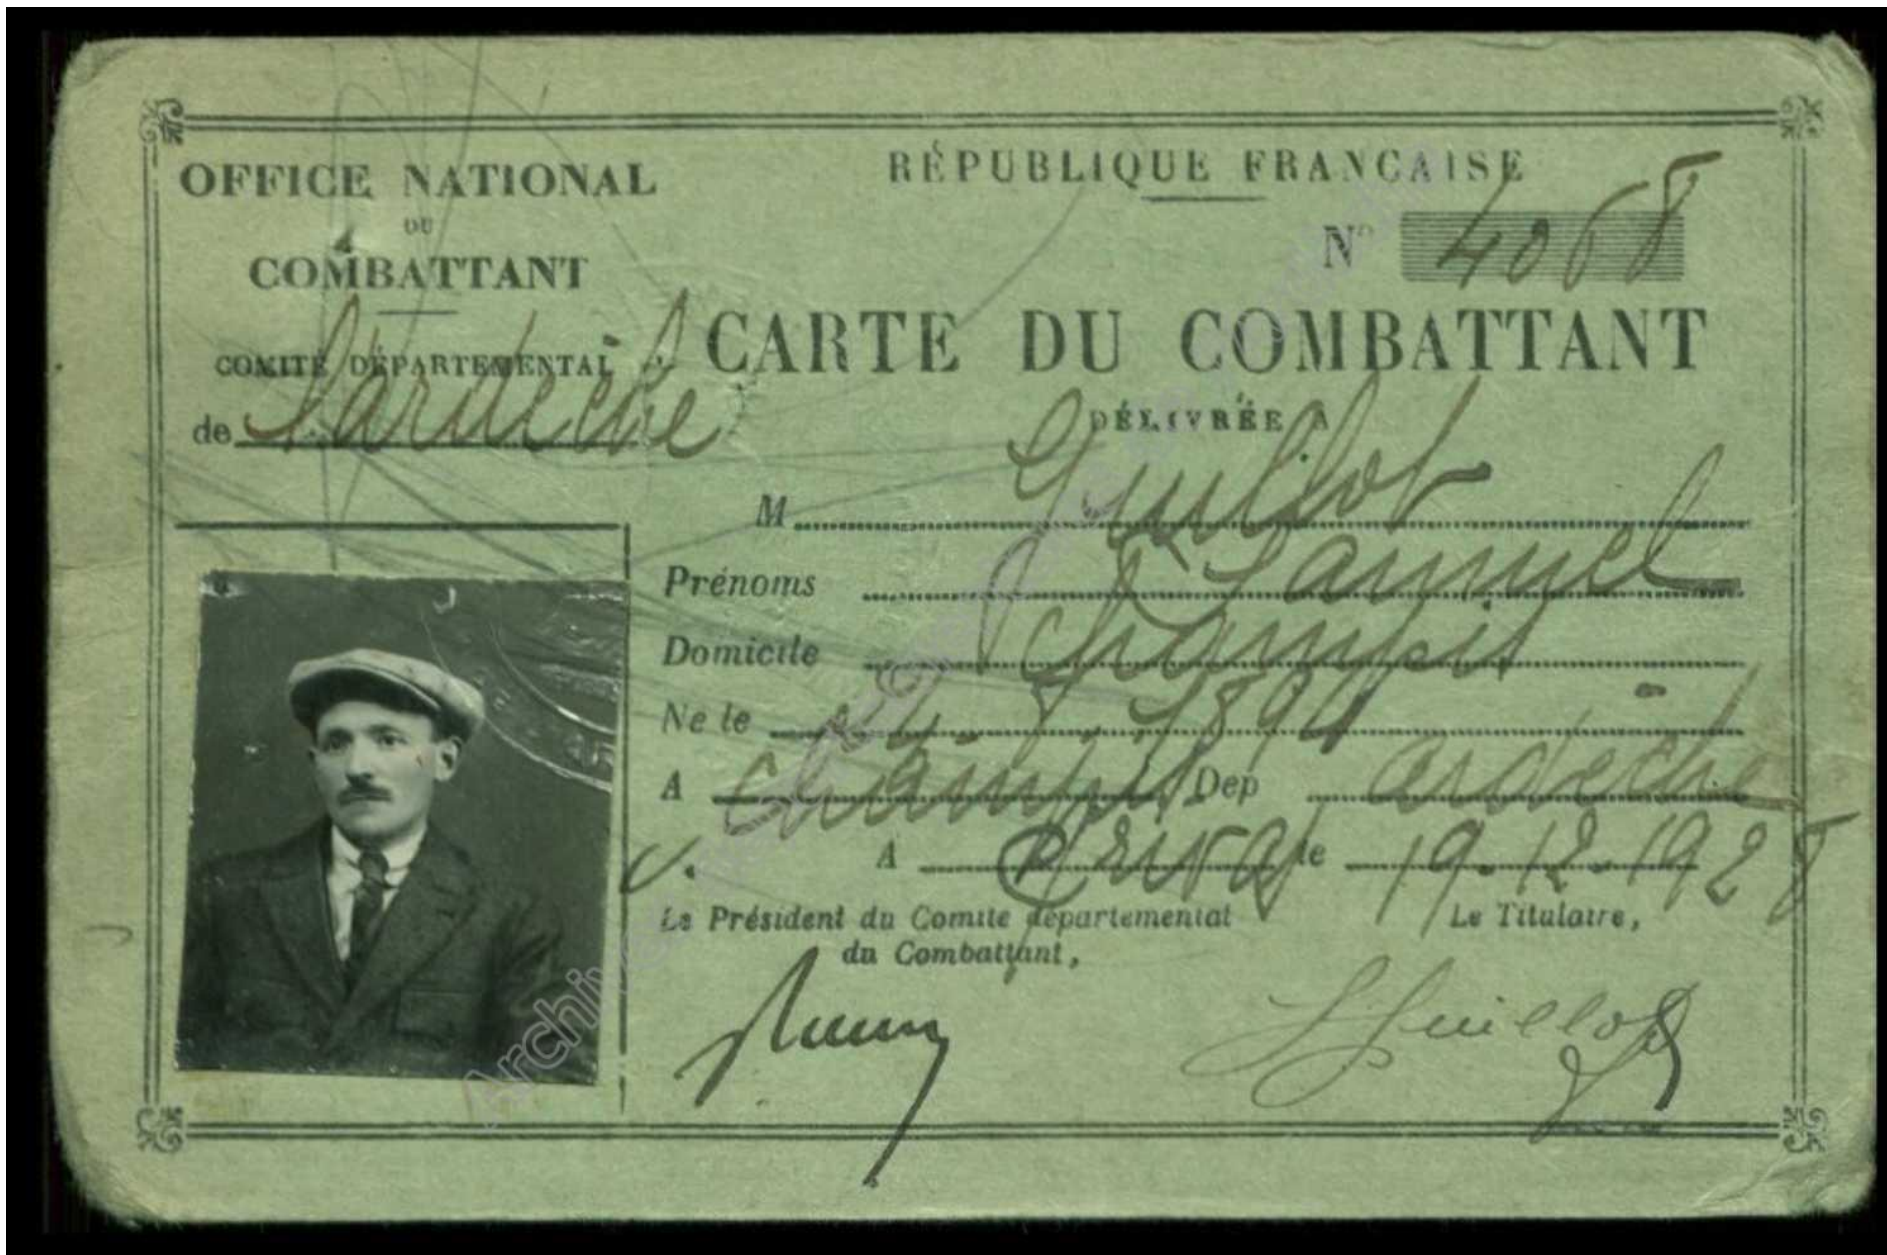 OFFICE NATIONAL
DU
COMBATTANT
COMITÉ DÉPARTEMENTAL
de l'ardèche
RÉPUBLIQUE FRANÇAISE
N° 4068
CARTE DU COMBATTANT
DÉLIVRÉE A
M Guillot
Prénoms Samuel
Domicile Champis
Né le 1894
A champis Dep ardèche
A Privas le 19-12-1928
Le Président du Comité départemental
du Combattant,
Le Titulaire,
S Guillot